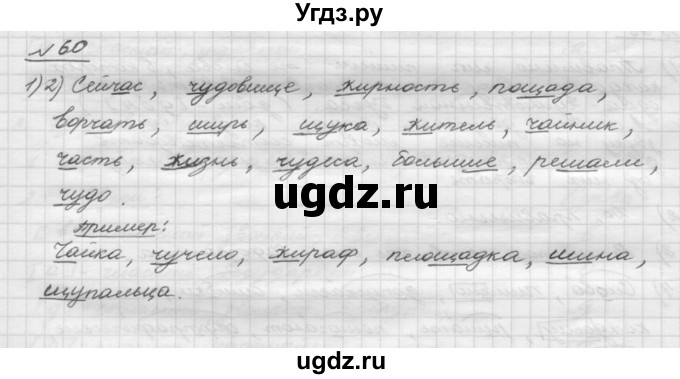 Угдз.ру
№ 60
1)2) Сейчас, чудовище, жирность, пощада,
ворчать, ширь, щука, житель, чайник,
часть, жизнь, чудеса, большие, решали,
чудо.
Пример:
Чайка, чучело, жираф, площадка, шина,
щупальца.
ugdz.ru
ugdz.ru
ugdz.ru